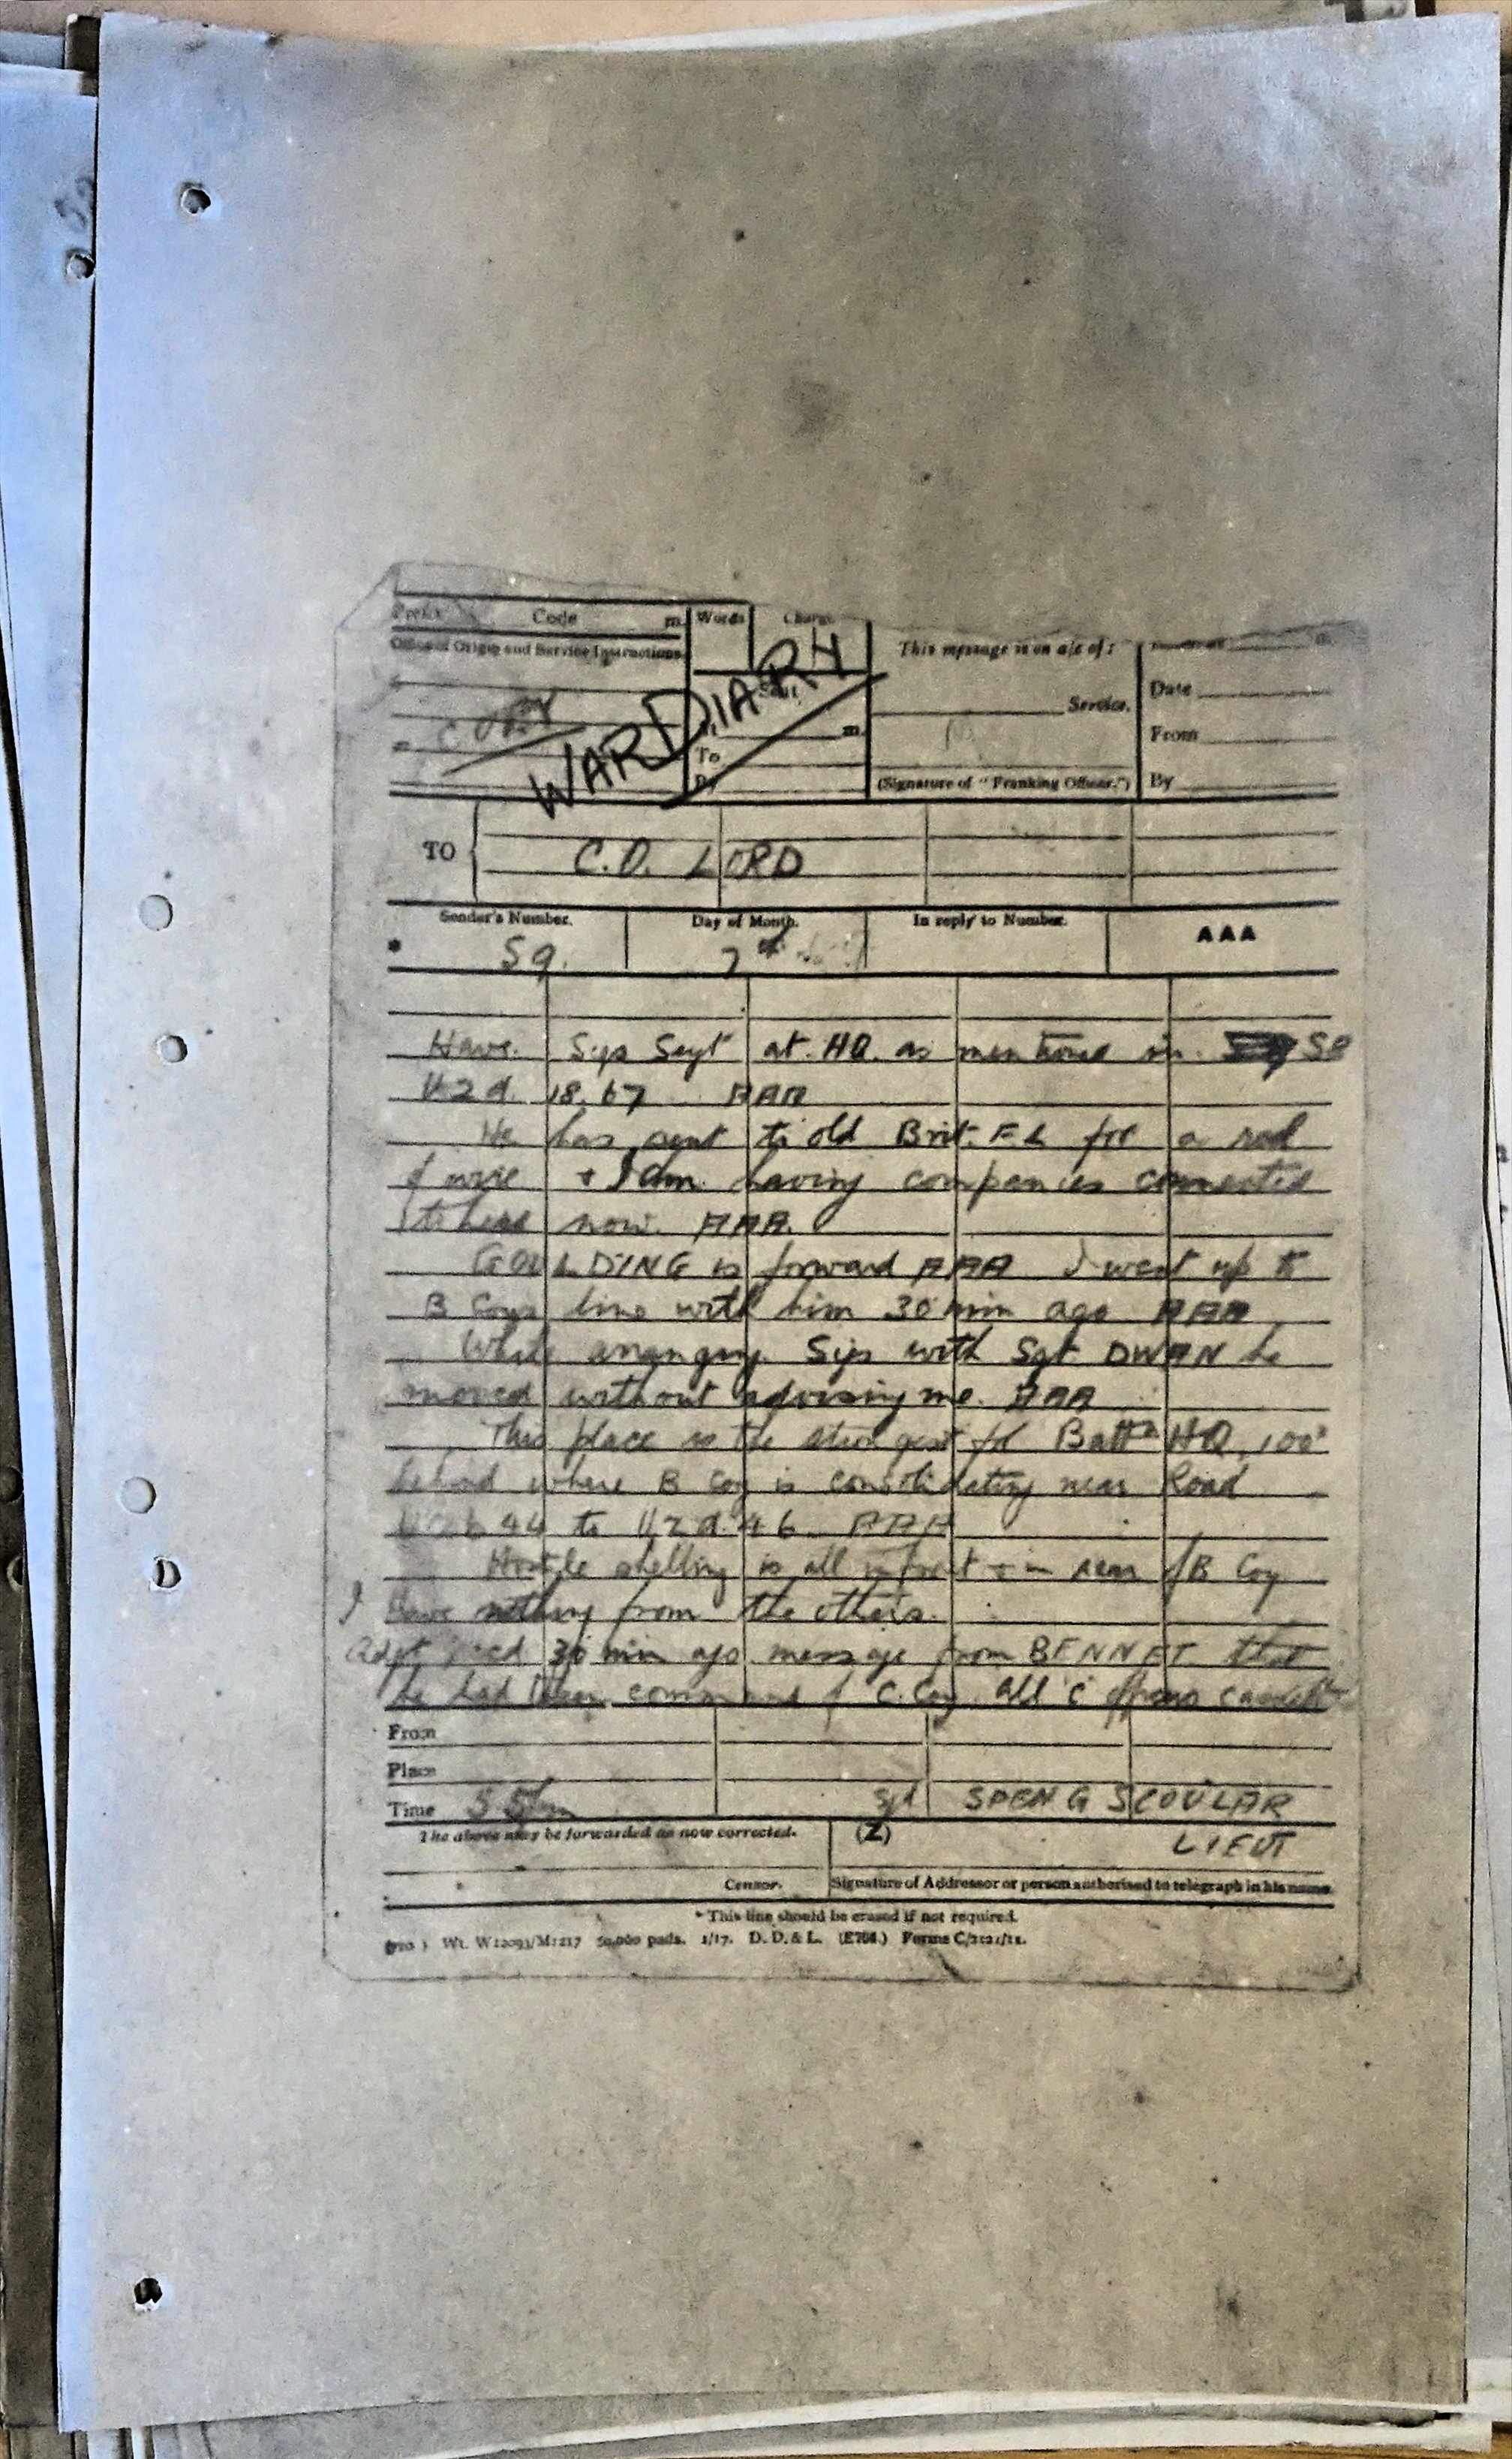 Prefix Code m. Words Charge
Office of Origin and Service Instructions.
This message is on a/c of:
COPY
WAR DIARY
Sent
Date
Service.
m.
From
To
By
(Signature of "Franking Officer.")
By
TO
C.O. LORD
Sender's Number. Day of Month. In reply to Number. AAA
* S9. 7th
Have Sigs Sergt at HQ. as mentioned in S8
U2d 18.67 AAA
He has sent to old Brit. F L for a reel
of wire + I am having companies connected
to here now. AAA.
GOULDING is forward AAA I went up to
B Coys line with him 30 min ago AAA
While arranging Sigs with Sgt DWAN he
moved without advising me. AAA
This place is the strongest for Battn HQ, 100x
behind where B Coy is consolidating near Road
44 to U2d 46 AAA
Hostile shelling is all in front + in rear of B Coy
I have nothing from the others.
Adjt recd 30 min ago message from BENNET that
he had taken command of C. Coy. All C officers
From
Place
Time
Sgd SPENG SCOULAR
The above may be forwarded as now corrected. (Z) LIEUT
Censor. Signature of Addressor or person authorised to telegraph in his name
* This line should be erased if not required.
pads. 1/17. D. D. & L. Forms